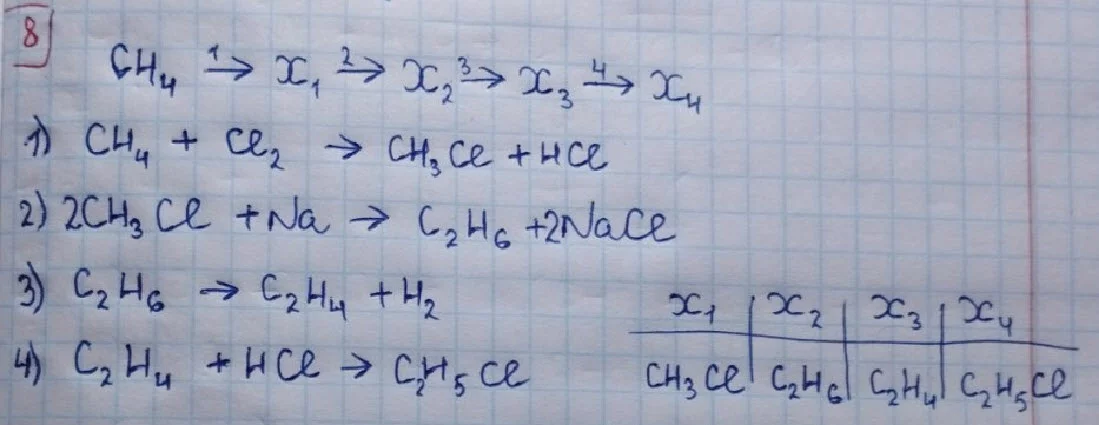 8
CH₄ →¹ X₁ →² X₂ →³ X₃ →⁴ X₄
1) CH₄ + Cl₂ → CH₃Cl + HCl
2) 2CH₃Cl + Na → C₂H₆ + 2NaCl
3) C₂H₆ → C₂H₄ + H₂
4) C₂H₄ + HCl → C₂H₅Cl
X₁ | X₂ | X₃ | X₄
CH₃Cl | C₂H₆ | C₂H₄ | C₂H₅Cl